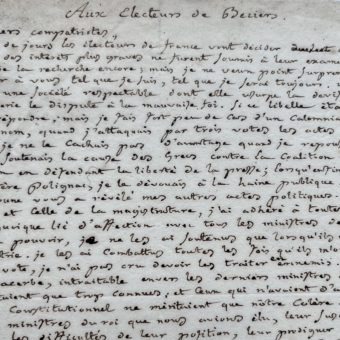 Aux Electeurs de Beziers.
ers compatriotes,
de jours les électeurs de france vont décider
des intérêts plus graves ne furent soumis à leur exame
la recherche encore; mais je ne veux point surpre
à vous tel que je suis, tel que je serai toujours.
une société respectable dont elle usurpe la
erie le dispute à la mauvaise foi. Si ce libelle éta
répondre; mais je fais fort peu de cas d'un calomnia
nom, quand j'attaquais par trois votes les actes
je ne le cachais pas d'avantage quand je repous
soutenais la cause des Grecs contre la Coalition
en défendant la liberté de la presse; lorsqu'enfin
ère polignac, je le dévouais à la haine publique
une vous a révélé mes autres actes politiques.
et celle de la magistrature, j'ai adhéré à toute
quoique lié d'affection avec tous les ministres de
pouvoir, je ne les ai soutenus que lorsqu'ils
trie. je les ai combattus toutes les fois qu'ils m'o
vote, je n'ai pas cru devoir traiter en ennemis
acerbe, intraitable envers les derniers ministres
étaient que trop connues; et ceux qui n'avaient d'a
constitutionnel ne méritaient que notre colère a
ministres du roi que nous avions élu, leur sus
les difficultés de leur position, leur prodiguer